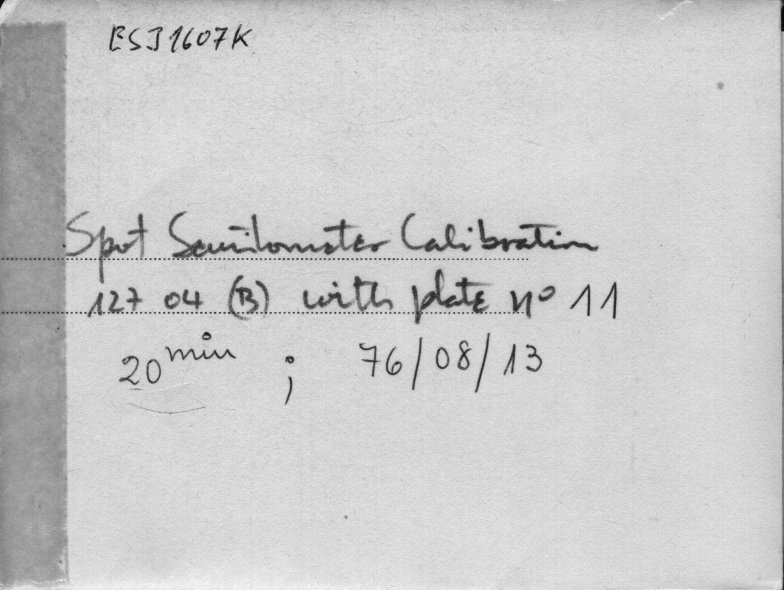 ESJ1607K
Spot Sensitometer Calibration
127 04 (B) with plate nº 11
20 min ; 76/08/13